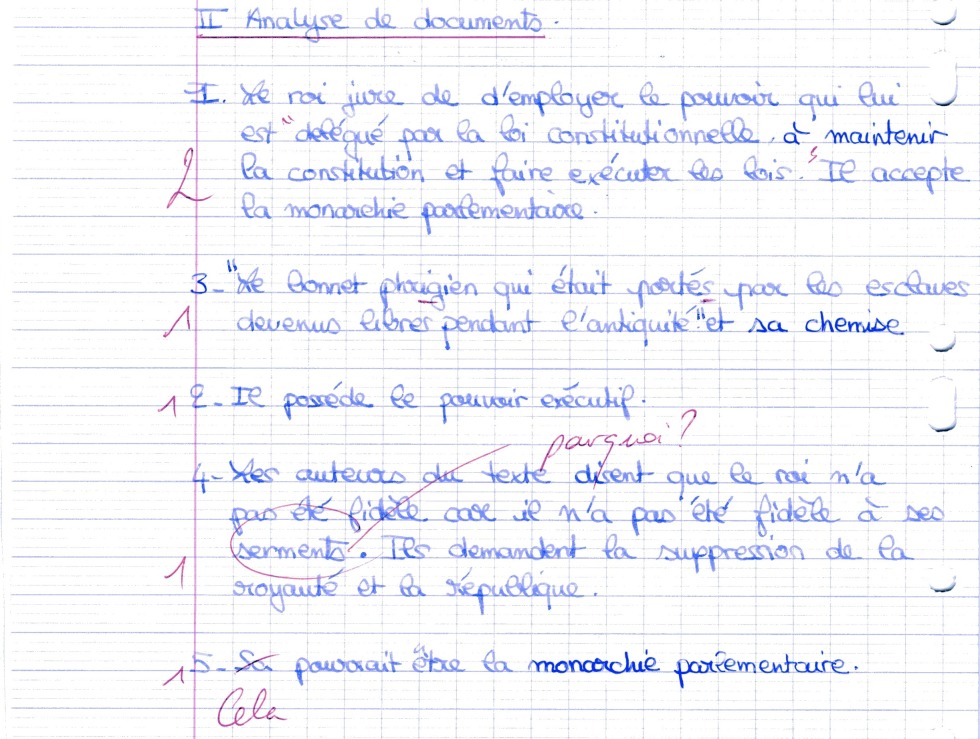 II Analyse de documents.
I. Le roi jure de d'employer le pouvoir qui lui
est "délégué par la loi constitutionnelle, à maintenir
2 la constitution et faire exécuter les lois." Il accepte
la monarchie parlementaire.
3- "Le bonnet phrigien qui était portés par les esclaves
1 devenus libres pendant l'antiquité." et sa chemise
1 2- Il posséde le pouvoir exécutif.
parquoi?
4- Les auteurs du texte disent que le roi n'a
pas été fidèle car il n'a pas été fidèle à ses
serments. Ils demandent la suppression de la
1 royauté et la république.
1 5- Sa pourrait être la monarchie parlementaire.
Cela